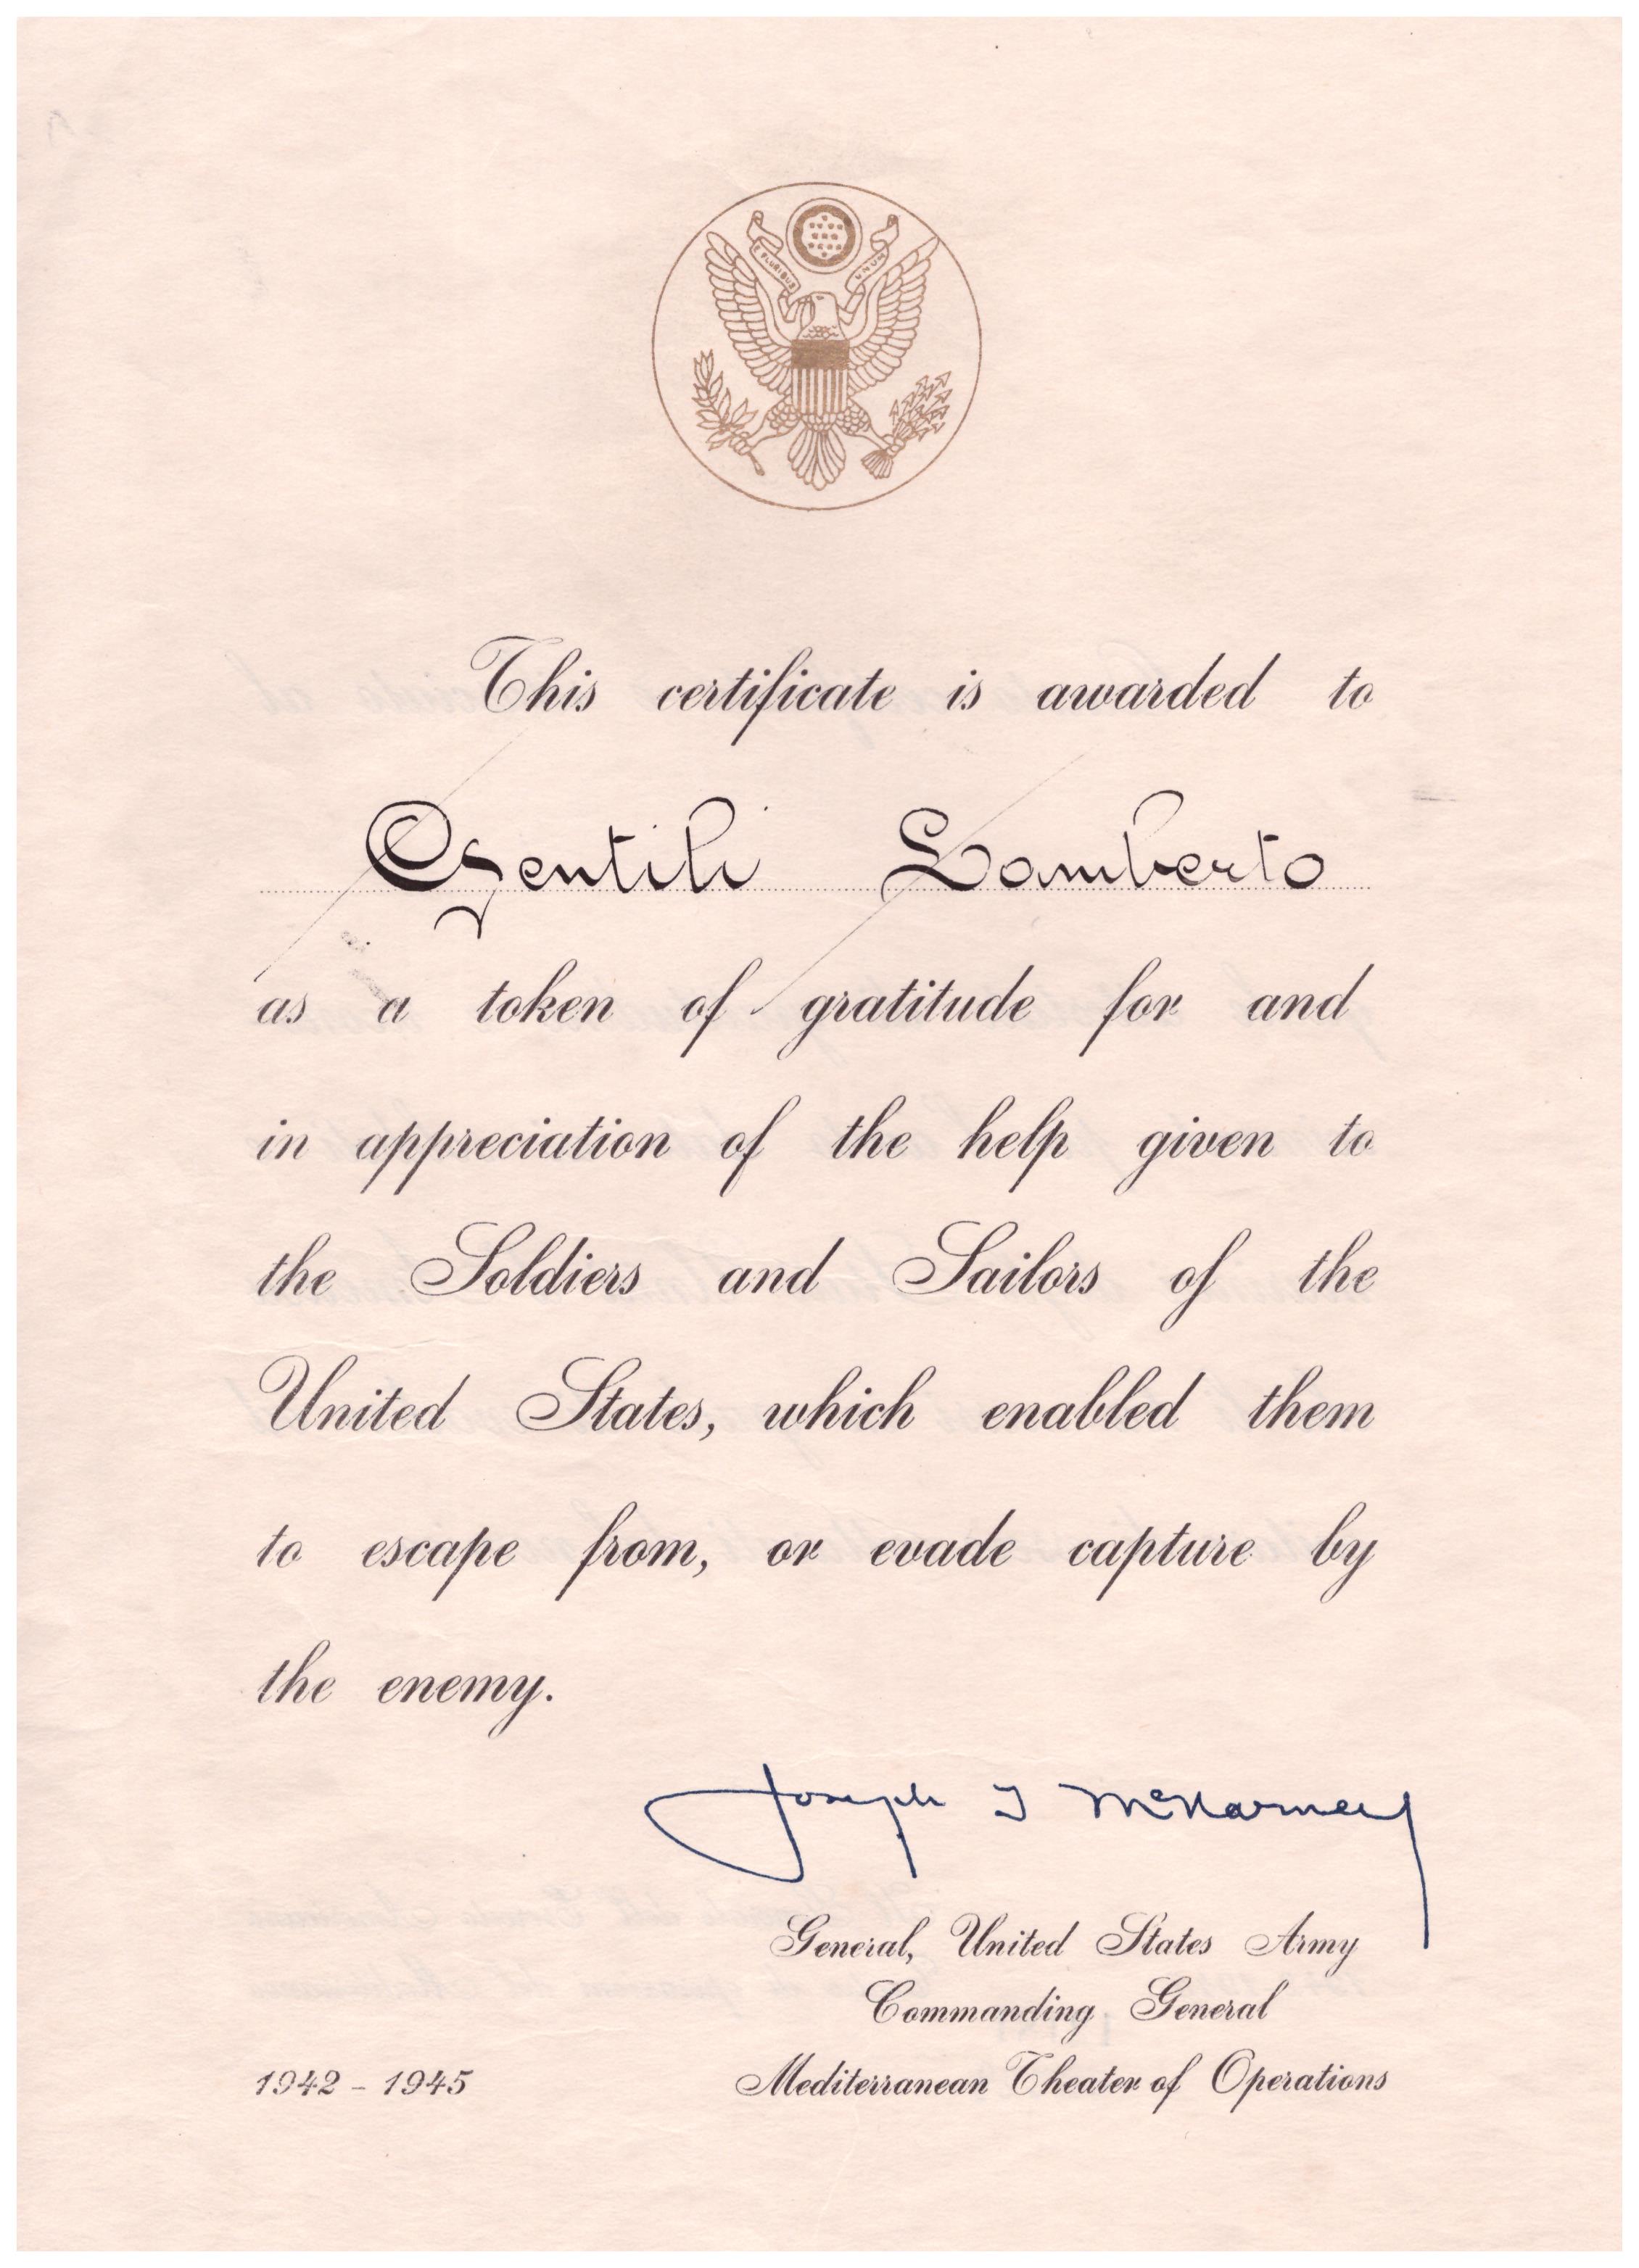 E PLURIBUS UNUM
This certificate is awarded to
Gentili Lamberto
as a token of gratitude for and
in appreciation of the help given to
the Soldiers and Sailors of the
United States, which enabled them
to escape from, or evade capture by
the enemy.
Joseph T McNarney
General, United States Army
Commanding General
1942 - 1945 Mediterranean Theater of Operations